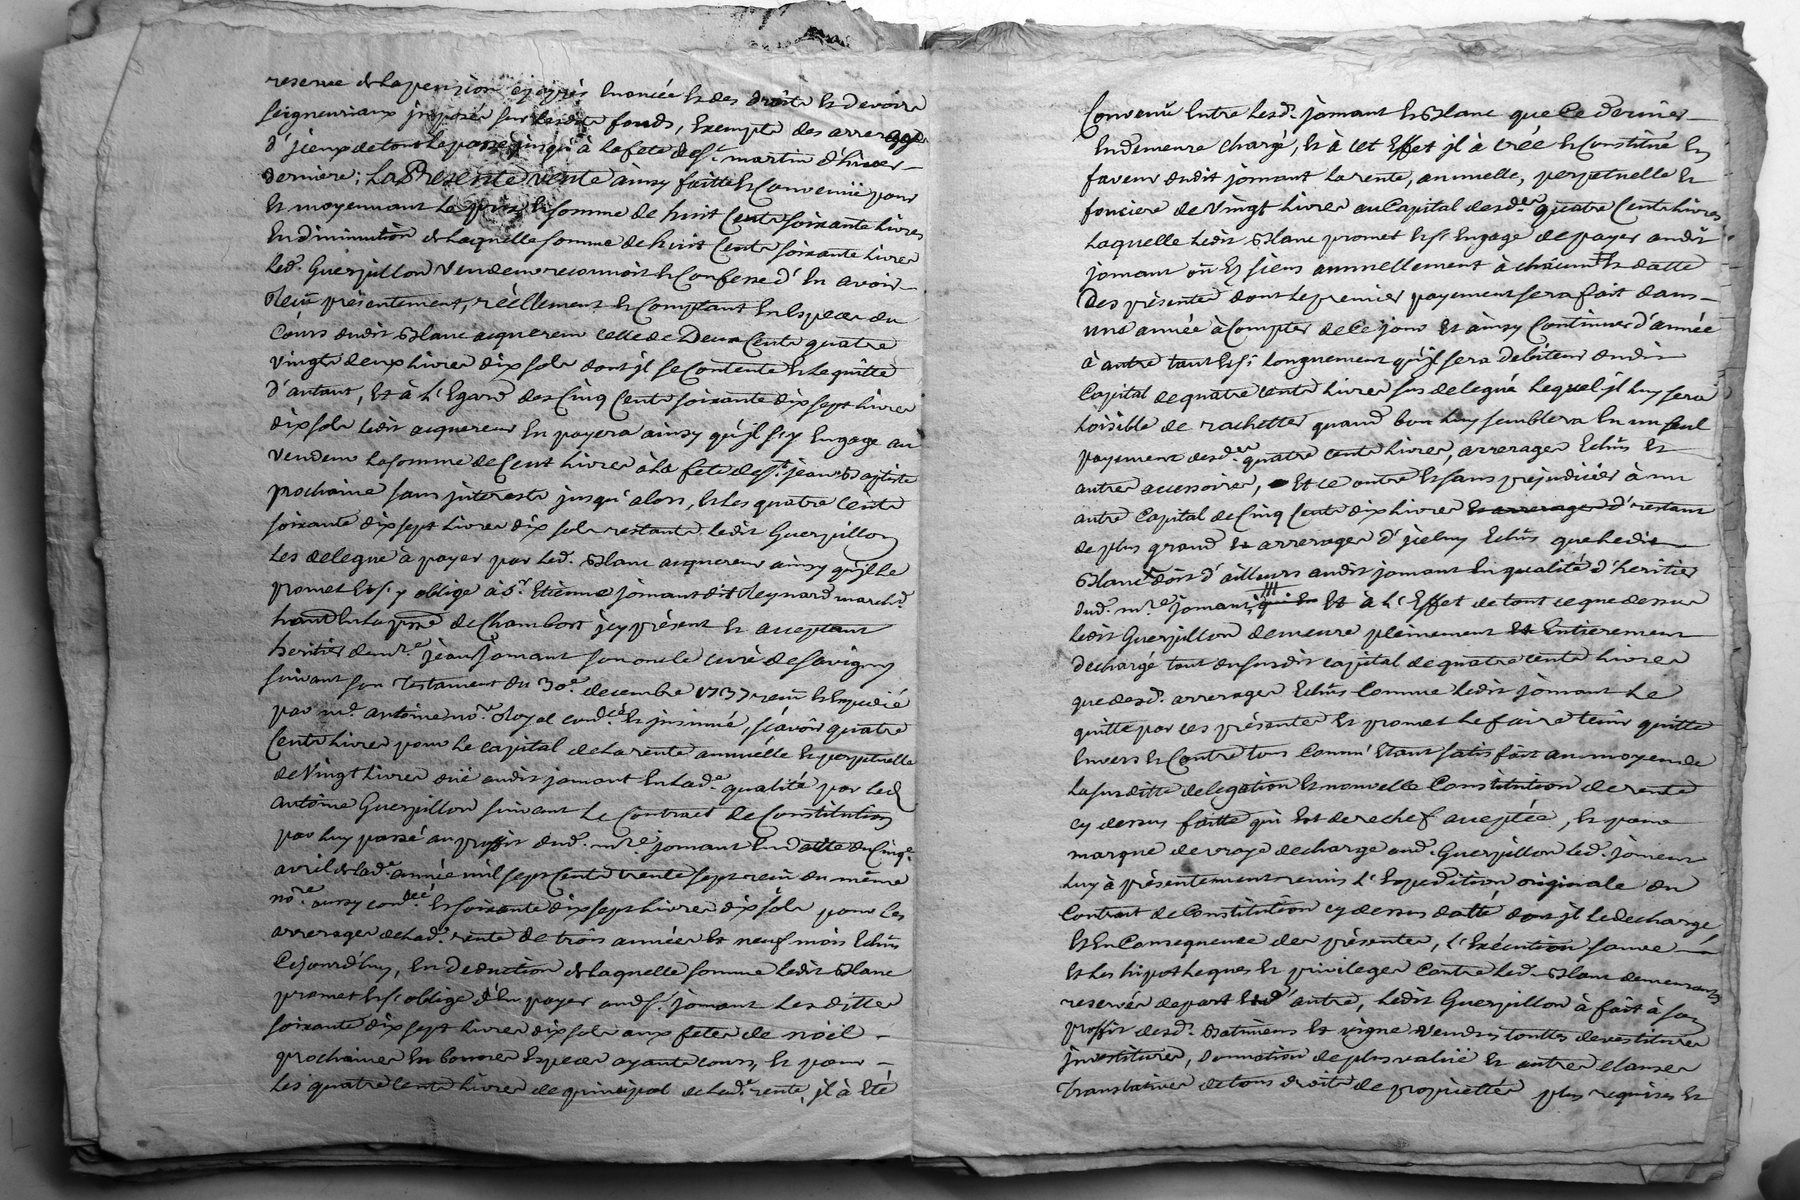 reserve de la pension cy après Enoncée Et des droits Et devoirs
seigneuriaux jmposés sur lesdits fonds, Exempts des arrerages
d'jceux de tout le passé jusqu'à la fete de St. martin d'hiver
derniere; La Presente vente ainsy faitte Et Convenüe pour
Et moyennant le prix Et somme de huit Cents soixante livres
En diminution de laquelle somme de huit Cents soixante livres
led. Guerpillon Vendeur reconnoit Et Confesse d'En avoir
Reçû présentement, réellement Et Comptant En Espece du
Cours dudit Blanc acquereur celle de Deux Cents quatre
Vingts deux livres dix sols dont jl se Contente Et le quitte
d'autant, Et à l'Egard des Cinq Cents soixante dix sept livres
dix sols ledit acquereur En payera ainsy qu'jl s'y Engage au
Vendeur la somme de Cent livres à la fete de St. jean Baptiste
prochaine sans jnterests jusqu'alors, Et les quatre Cents
soixante dix sept livres dix sols restants ledit Guerpillon
les delegue à payer par led. Blanc acquereur ainsy qu'jl le
promet Et s'y oblige à Sr. Etienne jomant dit Reynard march.
de Chambost jcy présent Et acceptant
heritier de mre. jean jomant son oncle curé de Savigny
suivant son testament du 30e. decembre 1737 reçû Et Expedié
par me. antoine nore. Royal Et jnsinué, sçavoir quatre
Cents livres pour le capital de la rente annuelle Et perpetuelle
de Vingt livres düe audit jomant En lade. qualité par led.
antoine Guerpillon suivant le Contract de Constitution
par luy passé au proffit dud. mre. jomant En datte du Cinqe.
avril de lade. année mil sept Cents trente sept reçû du même
nore. aussy Et soixante dix sept livres dix sols pour les
arrerages de lade. rente de trois années Et neuf mois Echûs
Cejourd'huy, En deduction de laquelle somme ledit Blanc
promet Et s'oblige d'En payer aud. sr. jomant lesdittes
soixante dix sept livres dix sols aux fetes de noël
prochaines En bonnes Especes ayants cours, Et pour
les quatre Cents livres de principal de lade. rente, jl à Eté
Convenû Entre lesd. jomant Et Blanc que Ce dernier
En demeure chargé, Et à cet Effet jl à créé Et Constitué En
faveur dudit jomant la rente, annuelle, perpetuelle Et
fonciere de Vingt livres au Capital desder. quatre Cents livres
laquelle ledit Blanc promet Et s'Engage de payer audit
jomant ou Es siens annuellement à chacun Et datte
Des présentes dont le premier payement sera fait dans
une année à Compter de Ce jour Et ainsy Continuer d'année
à autre tant Et si longuement qu'jl sera debiteur dudit
Capital de quatre Cents livres sus delegué lequel jl luy sera
loisible de rachetter quand bon luy semblera En un seul
payement desder. quatre Cents livres, arrerages Echûs Et
autres accessoires, Et ce outre Et sans prejudicier à un
autre Capital de Cinq Cents dix livres Et arrerages d'restant
de plus grand Et arrerages d'jceluy Echûs que ledit
Blanc doit d'ailleurs audit jomant En qualité d'heritier
dud. mre. jomant, qui En Et à l'Effet de tout ce que dessus
ledit Guerpillon demeure pleinement Et Entierement
dechargé tant du susdit capital de quatre Cents livres
que desd. arrerages Echûs Comme ledit jomant le
quitte par ces présentes Et promet le faire tenir quitte
Envers Et Contre tous Comm'Etant satisfait au moyen de
la susditte delegation Et nouvelle Constitution de rente
cy dessus faitte qui Est derechef acceptée, Et pour
marque de vraye decharge aud. Guerpillon led. jomant
luy à présentement remis l'Expedition originale du
Contract de Constitution cy dessus datté dont jl le decharge
Et En Consequence des présentes, l'Exécution sauve
Et les hipotheques Et privileges Contre led. Blanc demeurants
reservés de part Et d'autre, ledit Guerpillon à fait à son
proffit desd. Batimens Et vigne Vendus touttes devestitures
jnvestitures, donnation de plus valüe Et autres clauses
Translatives de tous droits de proprietté plus requises Et